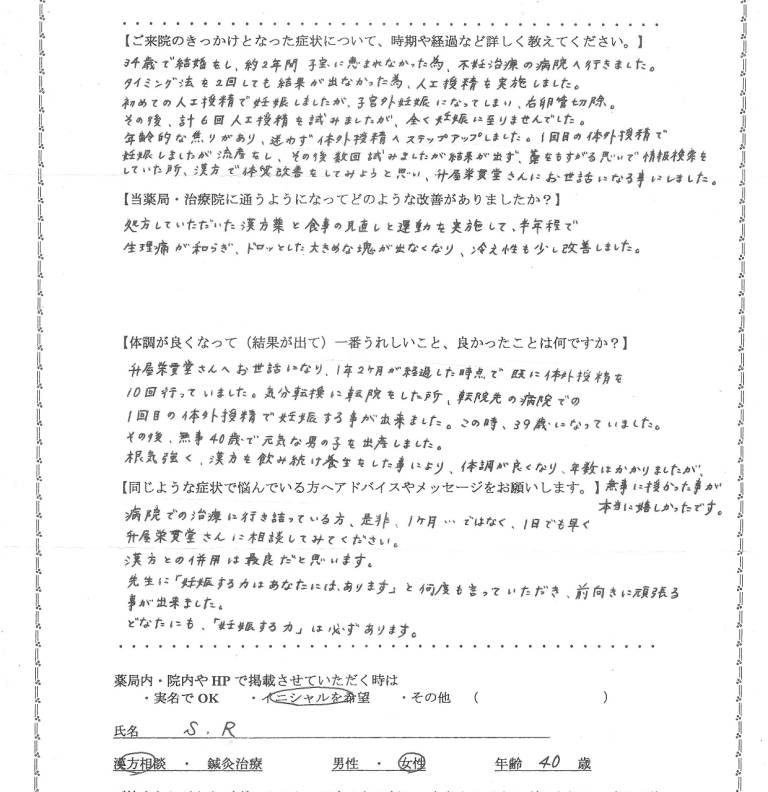 【ご来院のきっかけとなった症状について、時期や経過など詳しく教えてください。】
34歳で結婚をし、約2年間 子宝に恵まれなかった為、不妊治療の病院へ行きました。
タイミング法を2回しても結果が出なかった為、人工授精を実施しました。
初めての人工授精で妊娠しましたが、子宮外妊娠になってしまい、右卵管切除。
その後、計6回人工授精を試みましたが、全く妊娠に至りませんでした。
年齢的な焦りがあり、迷わず体外授精へステップアップしました。1回目の体外授精で
妊娠しましたが流産をし、その後数回試みましたが結果が出ず、藁をもすがる思いで情報検索を
していた所、漢方で体質改善をしてみようと思い、升屋栄貫堂さんにお世話になる事にしました。
【当薬局・治療院に通うようになってどのような改善がありましたか？】
処方していただいた漢方薬と食事の見直しと運動を実施して、半年程で
生理痛が和らぎ、ドロッとした大きめな塊が出なくなり、冷え性も少し改善しました。
【体調が良くなって（結果が出て）一番うれしいこと、良かったことは何ですか？】
升屋栄貫堂さんへお世話になり、1年2ヶ月が経過した時点で既に体外授精を
10回行っていました。気分転換に転院をした所、転院先の病院での
1回目の体外授精で妊娠する事が出来ました。この時、39歳になっていました。
その後、無事40歳で元気な男の子を出産しました。
根気強く、漢方を飲み続け養生をした事により、体調が良くなり、年数はかかりましたが、
無事に授かった事が
本当に嬉しかったです。
【同じような症状で悩んでいる方へアドバイスやメッセージをお願いします。】
病院での治療に行き詰っている方、是非、1ヶ月…ではなく、1日でも早く
升屋栄貫堂さんに相談してみてください。
漢方との併用は最良だと思います。
先生に「妊娠する力はあなたには、あります」と何度も言っていただき、前向きに頑張る
事が出来ました。
どなたにも、「妊娠する力」は必ずあります。
薬局内・院内や HP で掲載させていただく時は
・実名で OK ・イニシャルを希望 ・その他 （ ）
氏名 S．R
漢方相談 ・ 鍼灸治療 男性 ・ 女性 年齢 40 歳